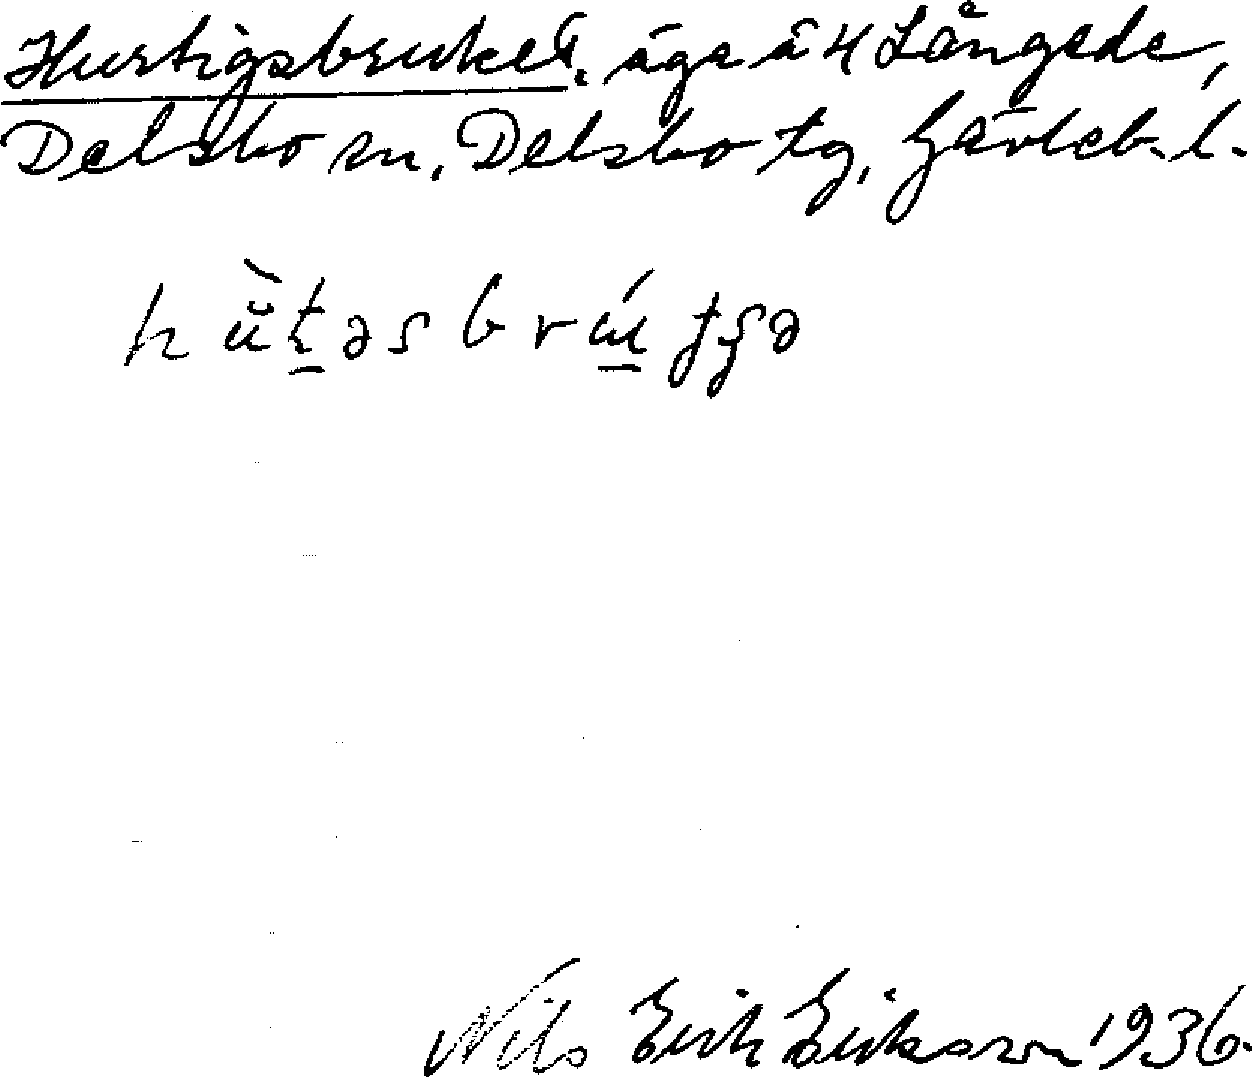 Hurtigsbruket, äga å 4 Långede,
Delsbo sn, Delsbo tg, Gävleb. l.
Nils Erik Eriksson 1936.